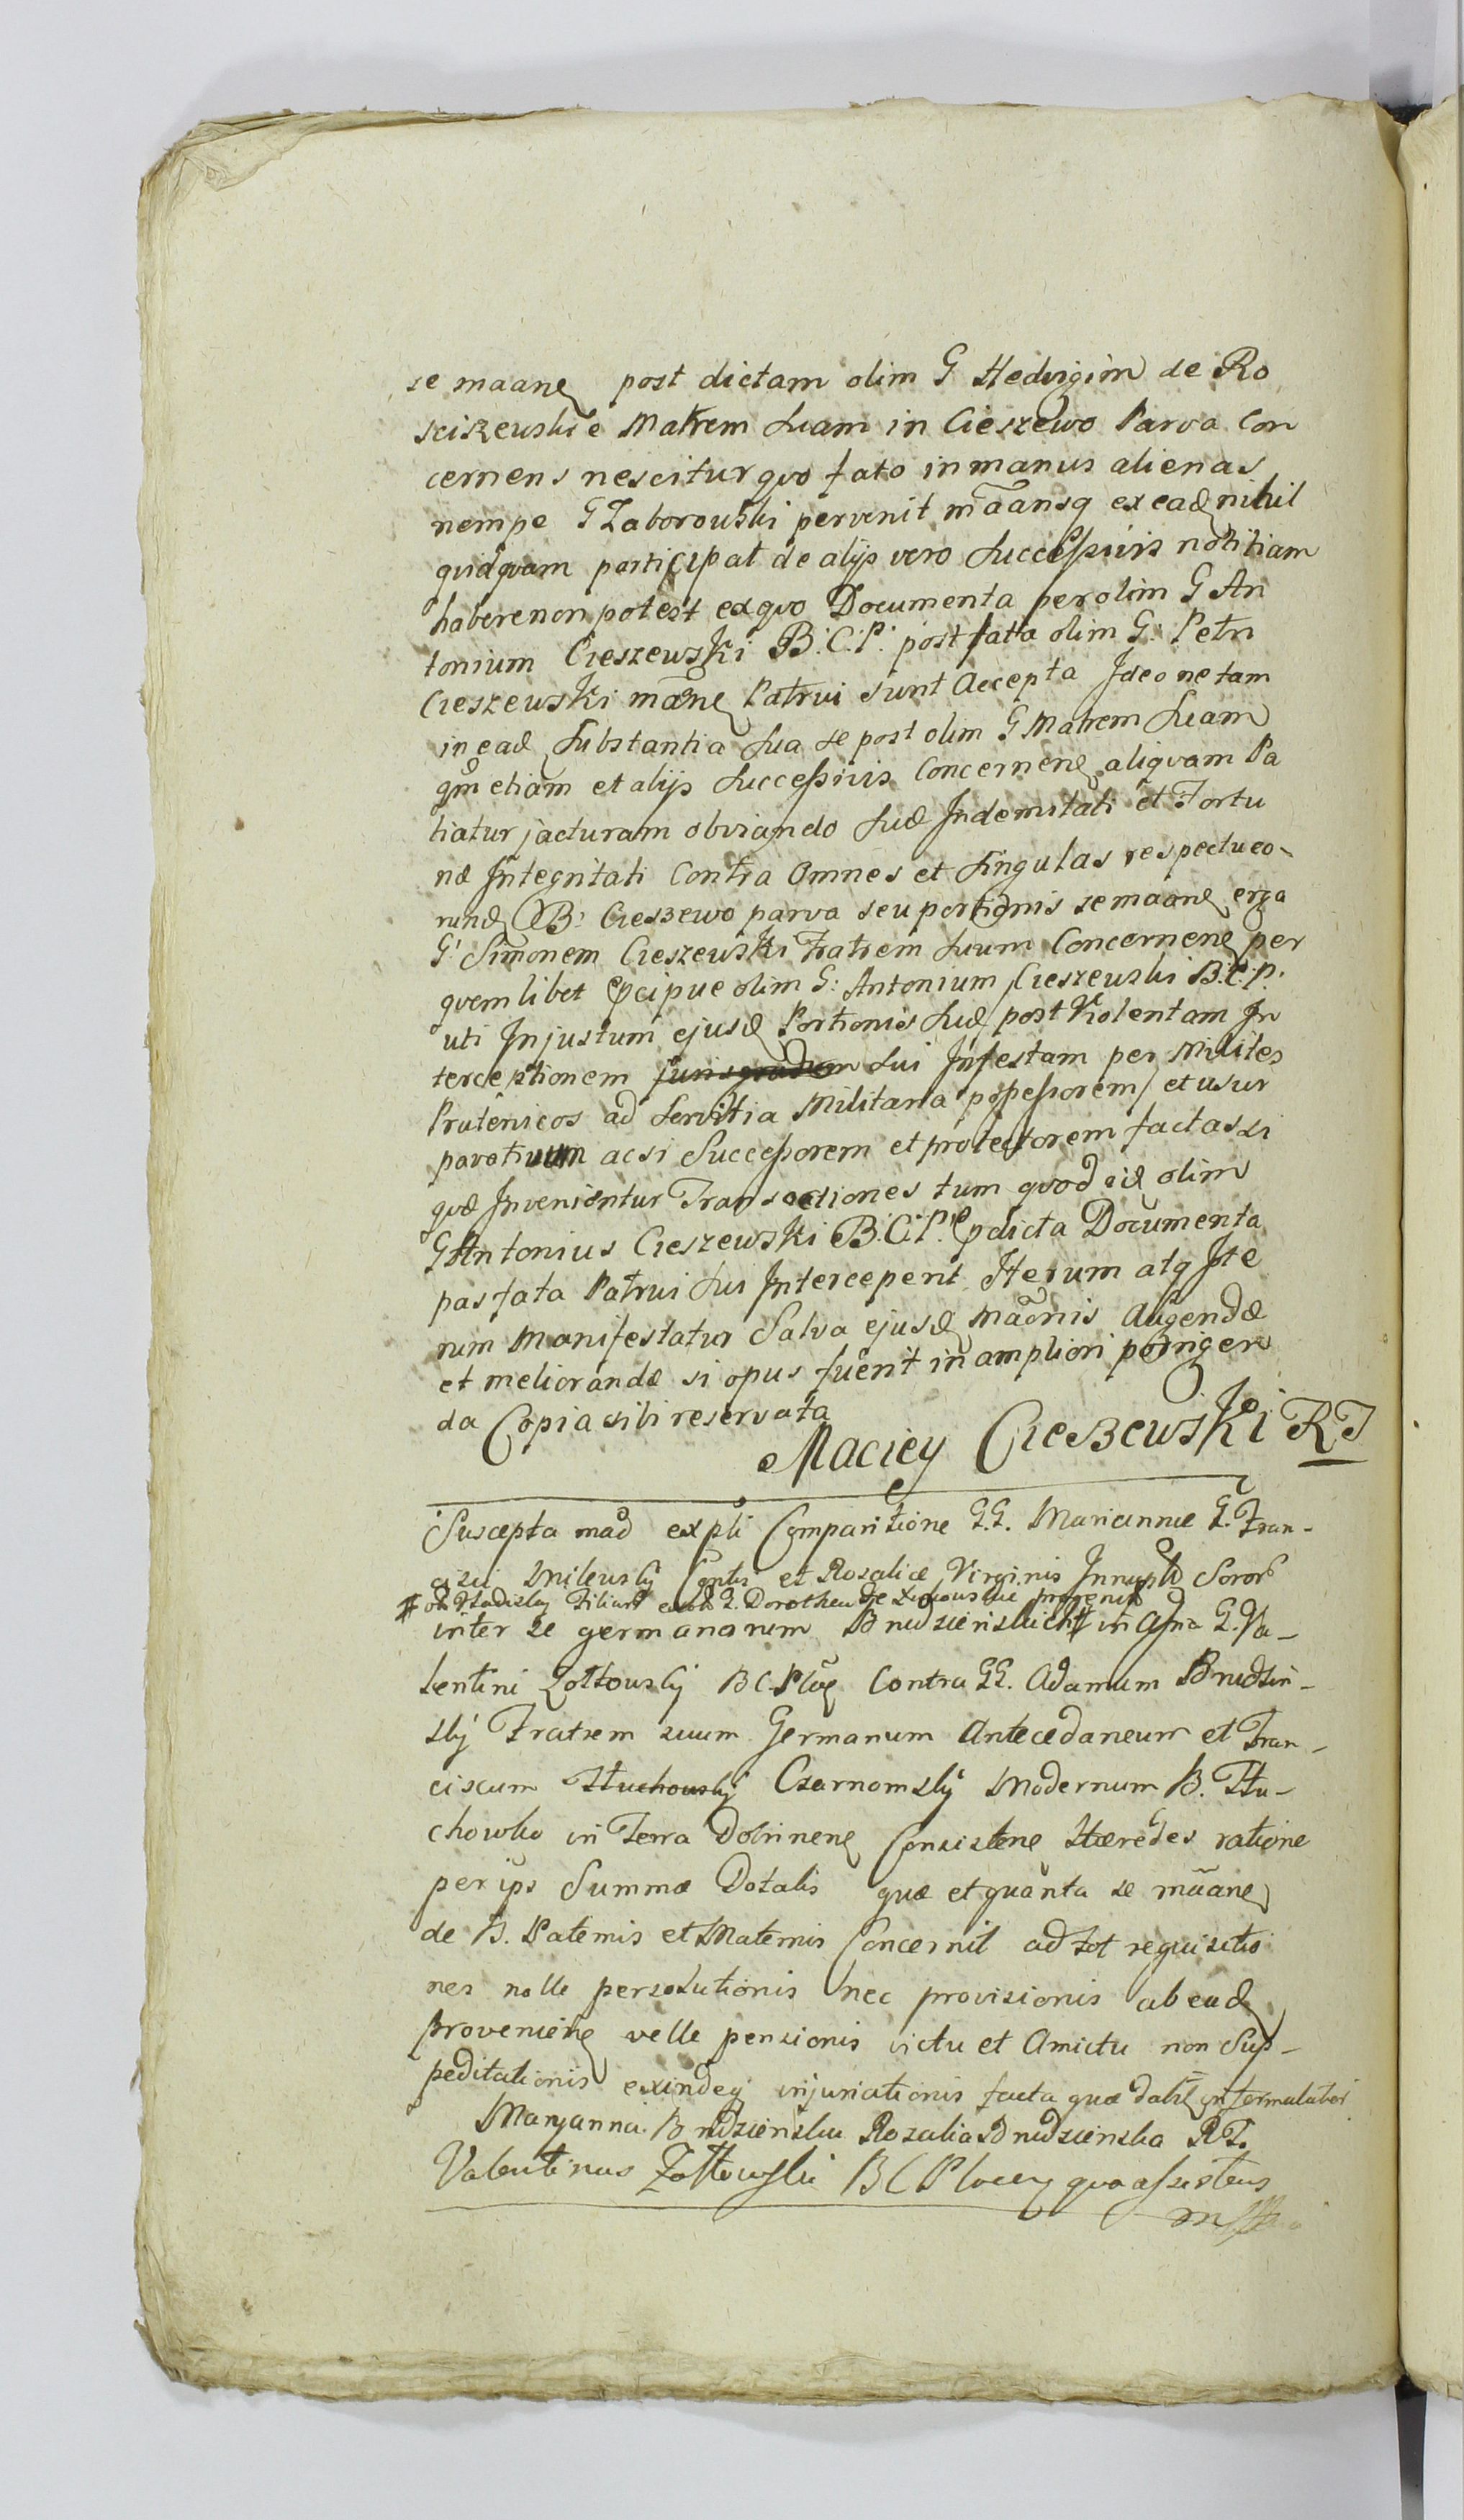 se maane post dictam olim G Hedvigim de Ro
sciszewskie Matrem Suam in Cieszewo Parva Con
cernens nescitur qvo fato in manus alienas
nempe G Zaborowski pervenit mãansq ex ead nihil
qvidqvam participat de alijs vero Successivis notitiam
habere non potest ex qvo Documenta per olim G An
tonium Cieszewski B.C.P. post fata olim G. Petri
Cieszewski mãne Patrui sunt Accepta Ideo ne tam
in ead Substantia Sua se post olim G Matrem Suam
qm etiam et alijs Successivis Concernene aliqvam Pa
tiatur jacturam obviando Suæ Indemitati et Fortu
næ Integritati Contra Omnes et Singulas respectu eo-
rund B: Cieszewo parva seu portionis se maane erga
G: Simonem Cieszewski Fratrem Suum Concernene per
qvemlibet Pcipue olim G: Antonium Cieszewski B.C.P.
uti Injustum ejusd Portionis Suæ post Violentam In
terceptionem Sui Infestam per Milites
Prutenicos ad Servitia Militaria possessorem et usur
pativum acsi Successorem et protectorem factas si
qvæ Invenientur Transactiones tum qvod id olim
G Antonius Cieszewski B.C.P. Pdicta Documenta
pas fata Patrui Sui Intercepent Iterum atq Ite
rum Manifestatur Salva ejusd Maõnis Augendæ
et meliorandæ si opus fuerit in ampliori porrigen
da Copia sibi reservata
Maciey Cieszewski RT
Suscepta mad expli Comparitione G.G. Mariannæ G. Fran-
cisci Milewsky Contis et Rosaliæ Virginis Innuptæ Soror
# ol. Vladislai Filiar G. Dorothea de
inter se germanarum Brudzienskich # in Assna G. Va-
lentini Zołtowsky B C Ploc Contra GG. Adamum Brudzin-
sky Fratrem suum Germanum Antecedaneum et Fran-
ciscum Tłuchowsky Czarnomsky Modernum B. Tłu-
chowko in Terra Dobrinene Consistene Hæredes ratione
per ips Summæ Dotalis quæ et quanta se mãane
de B. Paternis et Maternis Concernit ad tot requisitio
nes nolle persolutionis nec provisionis ab ead
proveniene velle pensionis victu et Amictu non Sup-
peditationis exindeq injuriationis facta quæ dabit
Maryanna Brudzienska Rozalia Brudzienska RT.
Valentinus Zołtowski B C Plocen qva assistens